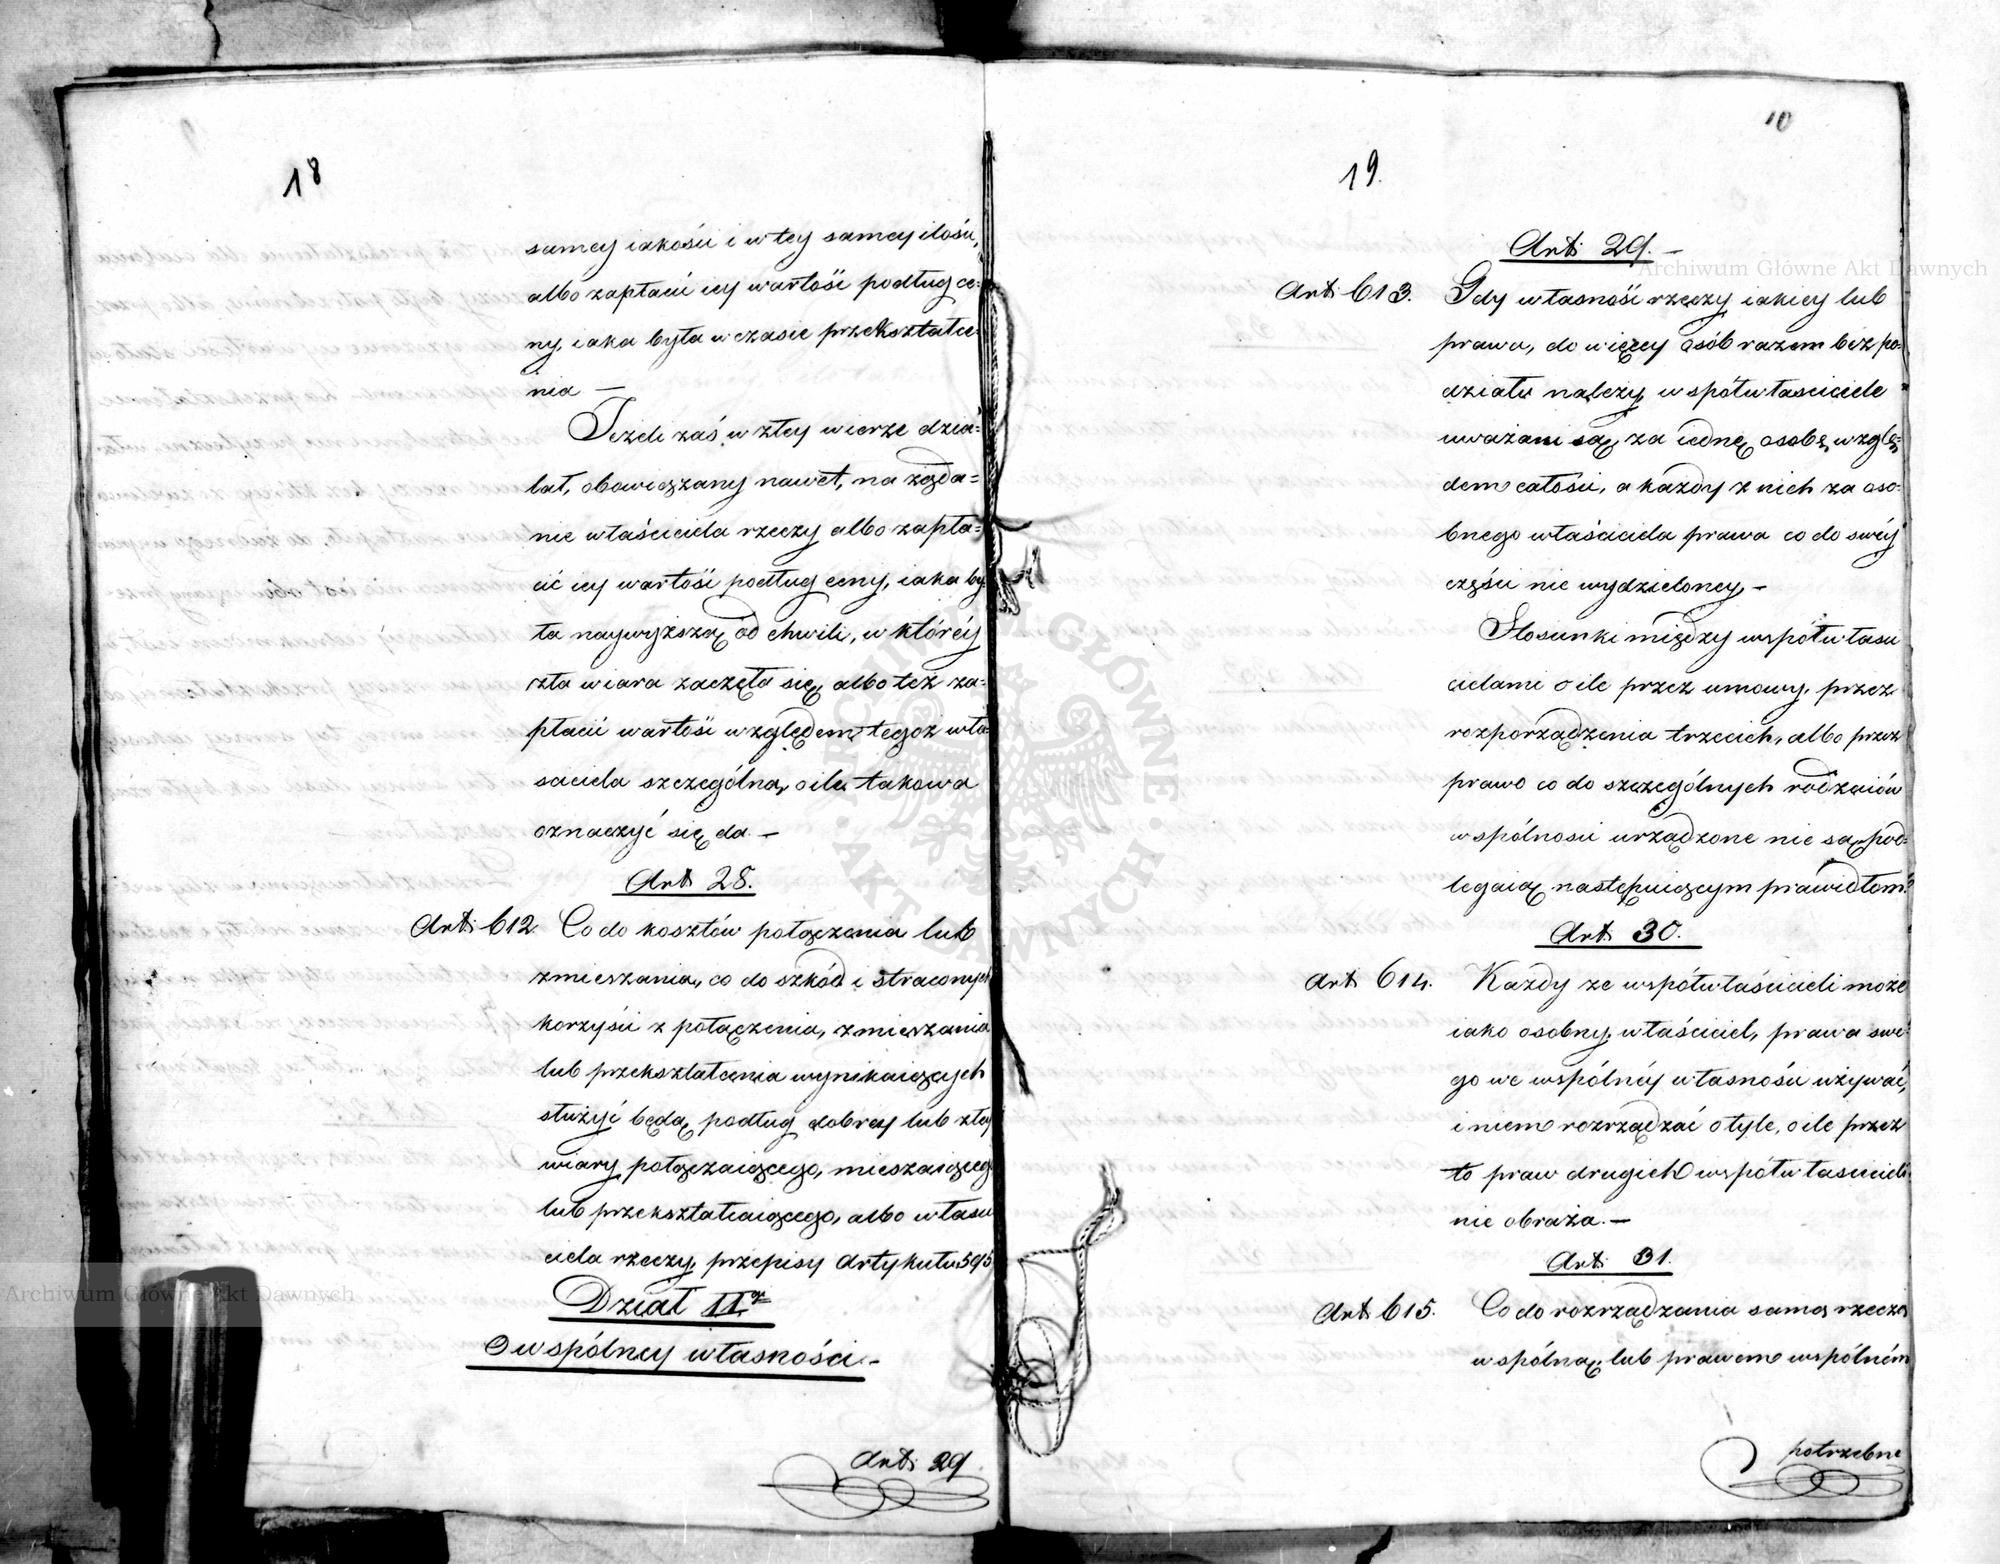 18
samey iakości i w tey samey ilości,
albo zapłacić iey wartość podług ce=
ny, iaka była w czasie przekształce=
nia —
Jeżeli zaś w złey wierze dzia=
łał, obowiązany nawet, na żąda=
nie właściciela rzeczy albo zapła=
cić iey wartość podług ceny, iaka by
ła naywyższą od chwili, w któréy
zła wiara zaczęła się, albo też za=
płacić wartość względem tegoż wła=
ściciela szczególną, o ile takowa
oznaczyć się da. —
Art. 28.
Art. 612. Co do kosztów połączenia lub
zmieszania, co do szkód i straconych
korzyści z połączenia, zmieszania
lub przekształcenia wynikaiących
służyć będą, podług dobrey lub złey
wiary połączaiącego, mieszaiącego
lub przekształcaiącego, albo właści
ciela rzeczy, przepisy Artykułu 595
Dział II
O wspólney własności. —
Art. 29.
10
19.
Art. 29. —
Art. 613. Gdy własność rzeczy iakiey lub
prawa, do więcey osób razem bez po=
działu należy, współwłaściciele
uważani są, za iednę osobę, wzglę=
dem całości, a każdy z nich za oso=
bnego właściciela prawa co do swéy
części nie wydzieloney, —
Stosunki między współwłaści
cielami o ile przez umowy, przez
rozporządzenia trzecich, albo przez
prawo co do szczególnych rodzaiów
wspólności urządzone nie są, pod=
legaią następuiącym prawidłom:
Art. 30.
Art. 614. Każdy ze współwłaścicieli może
iako osobny, właściciel, prawa swe=
go we wspólnéy własności używać,
i niem rozrządzać o tyle, o ile przez
to praw drugich współwłaścicieli
nie obraża. —
Art. 31.
Art. 615. Co do rozrządzania samą rzeczą
wspólną, lub prawem wspólném
potrzebne
Archiwum Główne Akt Dawnych
Archiwum Główne Akt Dawnych
ARCHIWUM GŁÓWNE · AKT DAWNYCH ·